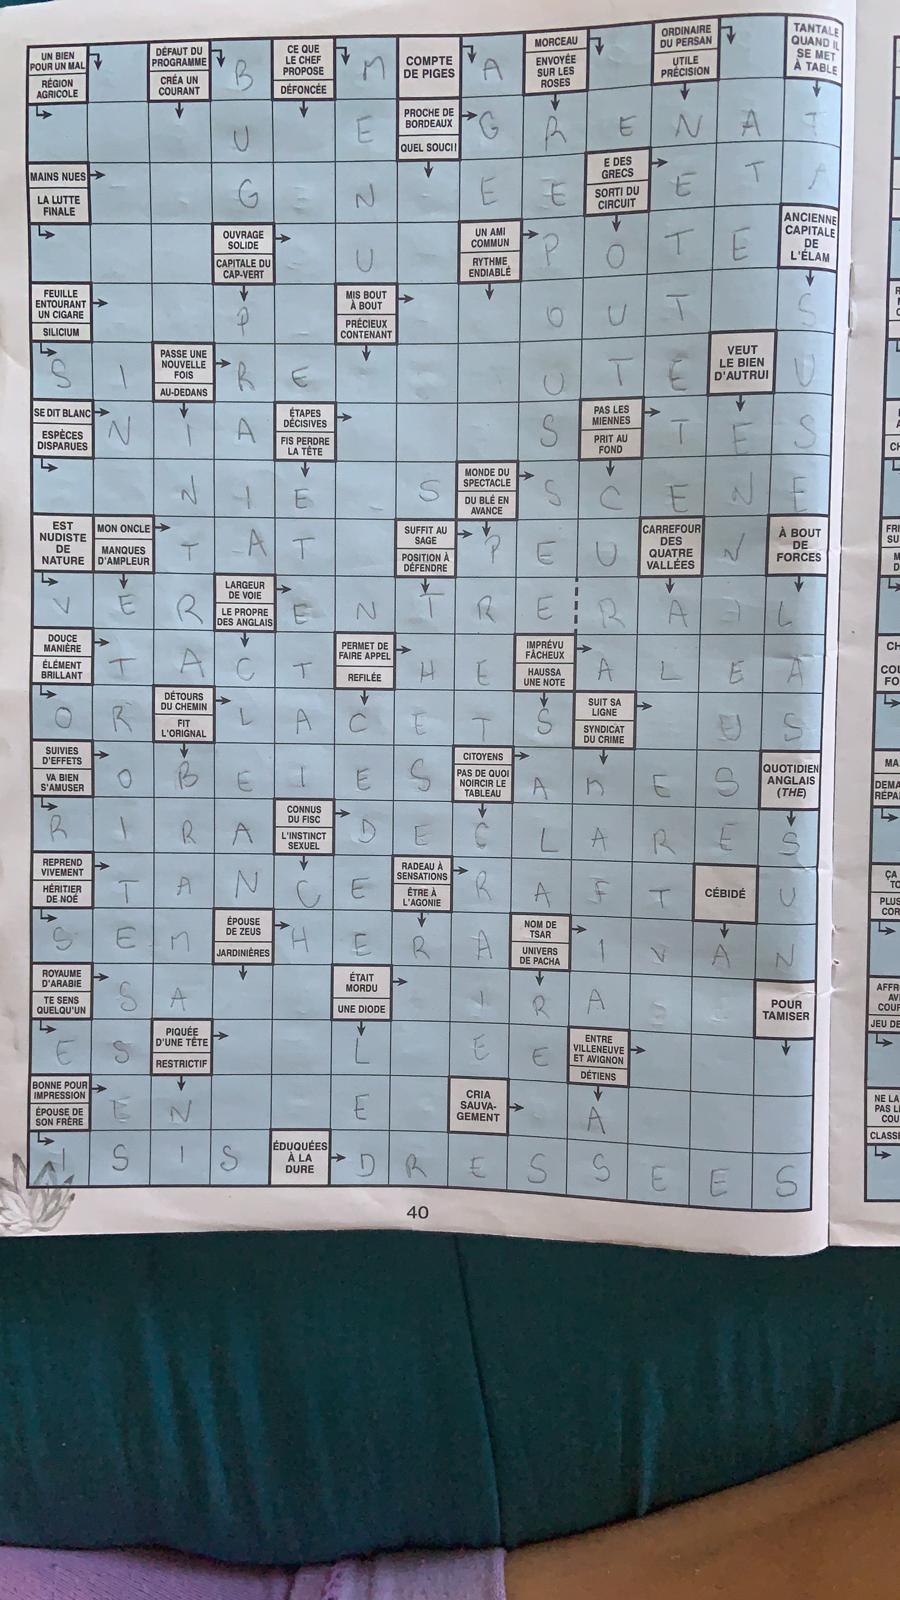 UN BIEN POUR UN MAL
RÉGION AGRICOLE
DÉFAUT DU PROGRAMME
CRÉA UN COURANT
B
CE QUE LE CHEF PROPOSE
DÉFONCÉE
M
COMPTE DE PIGES
A
MORCEAU
ENVOYÉE SUR LES ROSES
ORDINAIRE DU PERSAN
UTILE PRÉCISION
TANTALE QUAND IL SE MET À TABLE
U E
PROCHE DE BORDEAUX
QUEL SOUCI!
G R E N A T
MAINS NUES
LA LUTTE FINALE
G N E E
E DES GRECS
SORTI DU CIRCUIT
E T A
OUVRAGE SOLIDE
CAPITALE DU CAP-VERT
U
UN AMI COMMUN
RYTHME ENDIABLÉ
P O T E
ANCIENNE CAPITALE DE L'ÉLAM
FEUILLE ENTOURANT UN CIGARE
SILICIUM
P
MIS BOUT À BOUT
PRÉCIEUX CONTENANT
O U T S
S I
PASSE UNE NOUVELLE FOIS
AU-DEDANS
R E U T E
VEUT LE BIEN D'AUTRUI
U
SE DIT BLANC
ESPÈCES DISPARUES
N I A
ÉTAPES DÉCISIVES
FIS PERDRE LA TÊTE
S
PAS LES MIENNES
PRIT AU FOND
T E S
N I E S
MONDE DU SPECTACLE
DU BLÉ EN AVANCE
S C E N E
EST NUDISTE DE NATURE
MON ONCLE
MANQUES D'AMPLEUR
T A T
SUFFIT AU SAGE
POSITION À DÉFENDRE
P E U
CARREFOUR DES QUATRE VALLÉES
N
À BOUT DE FORCES
V E R
LARGEUR DE VOIE
LE PROPRE DES ANGLAIS
E N T R E R A I L
DOUCE MANIÈRE
ÉLÉMENT BRILLANT
T A C T
PERMET DE FAIRE APPEL
REFILÉE
H E
IMPRÉVU FÂCHEUX
HAUSSA UNE NOTE
A L E A
O R
DÉTOURS DU CHEMIN
FIT L'ORIGNAL
L A C E T S
SUIT SA LIGNE
SYNDICAT DU CRIME
U S
SUIVIES D'EFFETS
VA BIEN S'AMUSER
O B E I E S
CITOYENS
PAS DE QUOI NOIRCIR LE TABLEAU
A M E S
QUOTIDIEN ANGLAIS (THE)
R I R A
CONNUS DU FISC
L'INSTINCT SEXUEL
D E C L A R E S
REPREND VIVEMENT
HÉRITIER DE NOÉ
T A N C E
RADEAU À SENSATIONS
ÊTRE À L'AGONIE
R A F T
CÉBIDÉ
U
S E M
ÉPOUSE DE ZEUS
JARDINIÈRES
H E R A
NOM DE TSAR
UNIVERS DE PACHA
I V A N
ROYAUME D'ARABIE
TE SENS QUELQU'UN
S A
ÉTAIT MORDU
UNE DIODE
I R A
POUR TAMISER
E S
PIQUÉE D'UNE TÊTE
RESTRICTIF
L E E
ENTRE VILLENEUVE ET AVIGNON
DÉTIENS
BONNE POUR IMPRESSION
ÉPOUSE DE SON FRÈRE
E N E
CRIA SAUVAGEMENT
A
I S I S
ÉDUQUÉES À LA DURE
D R E S S E E S
40